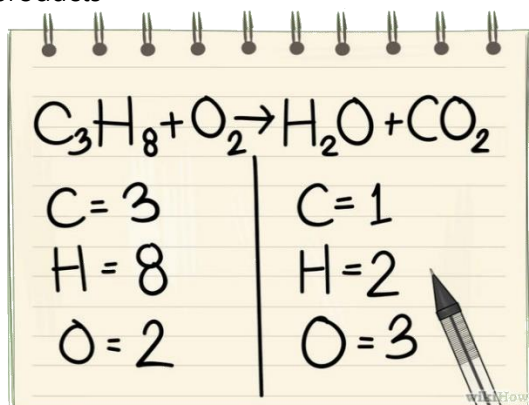 C₃H₈+O₂→H₂O+CO₂
C=3 C=1
H=8 H=2
O=2 O=3
wikiHow